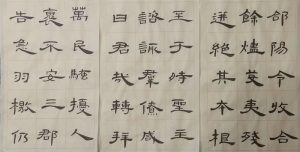 萬民騷擾人
褱不安三郡
告急羽檄仍
至于時聖主
諮諏羣僚咸
曰君哉轉拜
郃陽令收合
餘燼芟夷殘
迸絕其本根